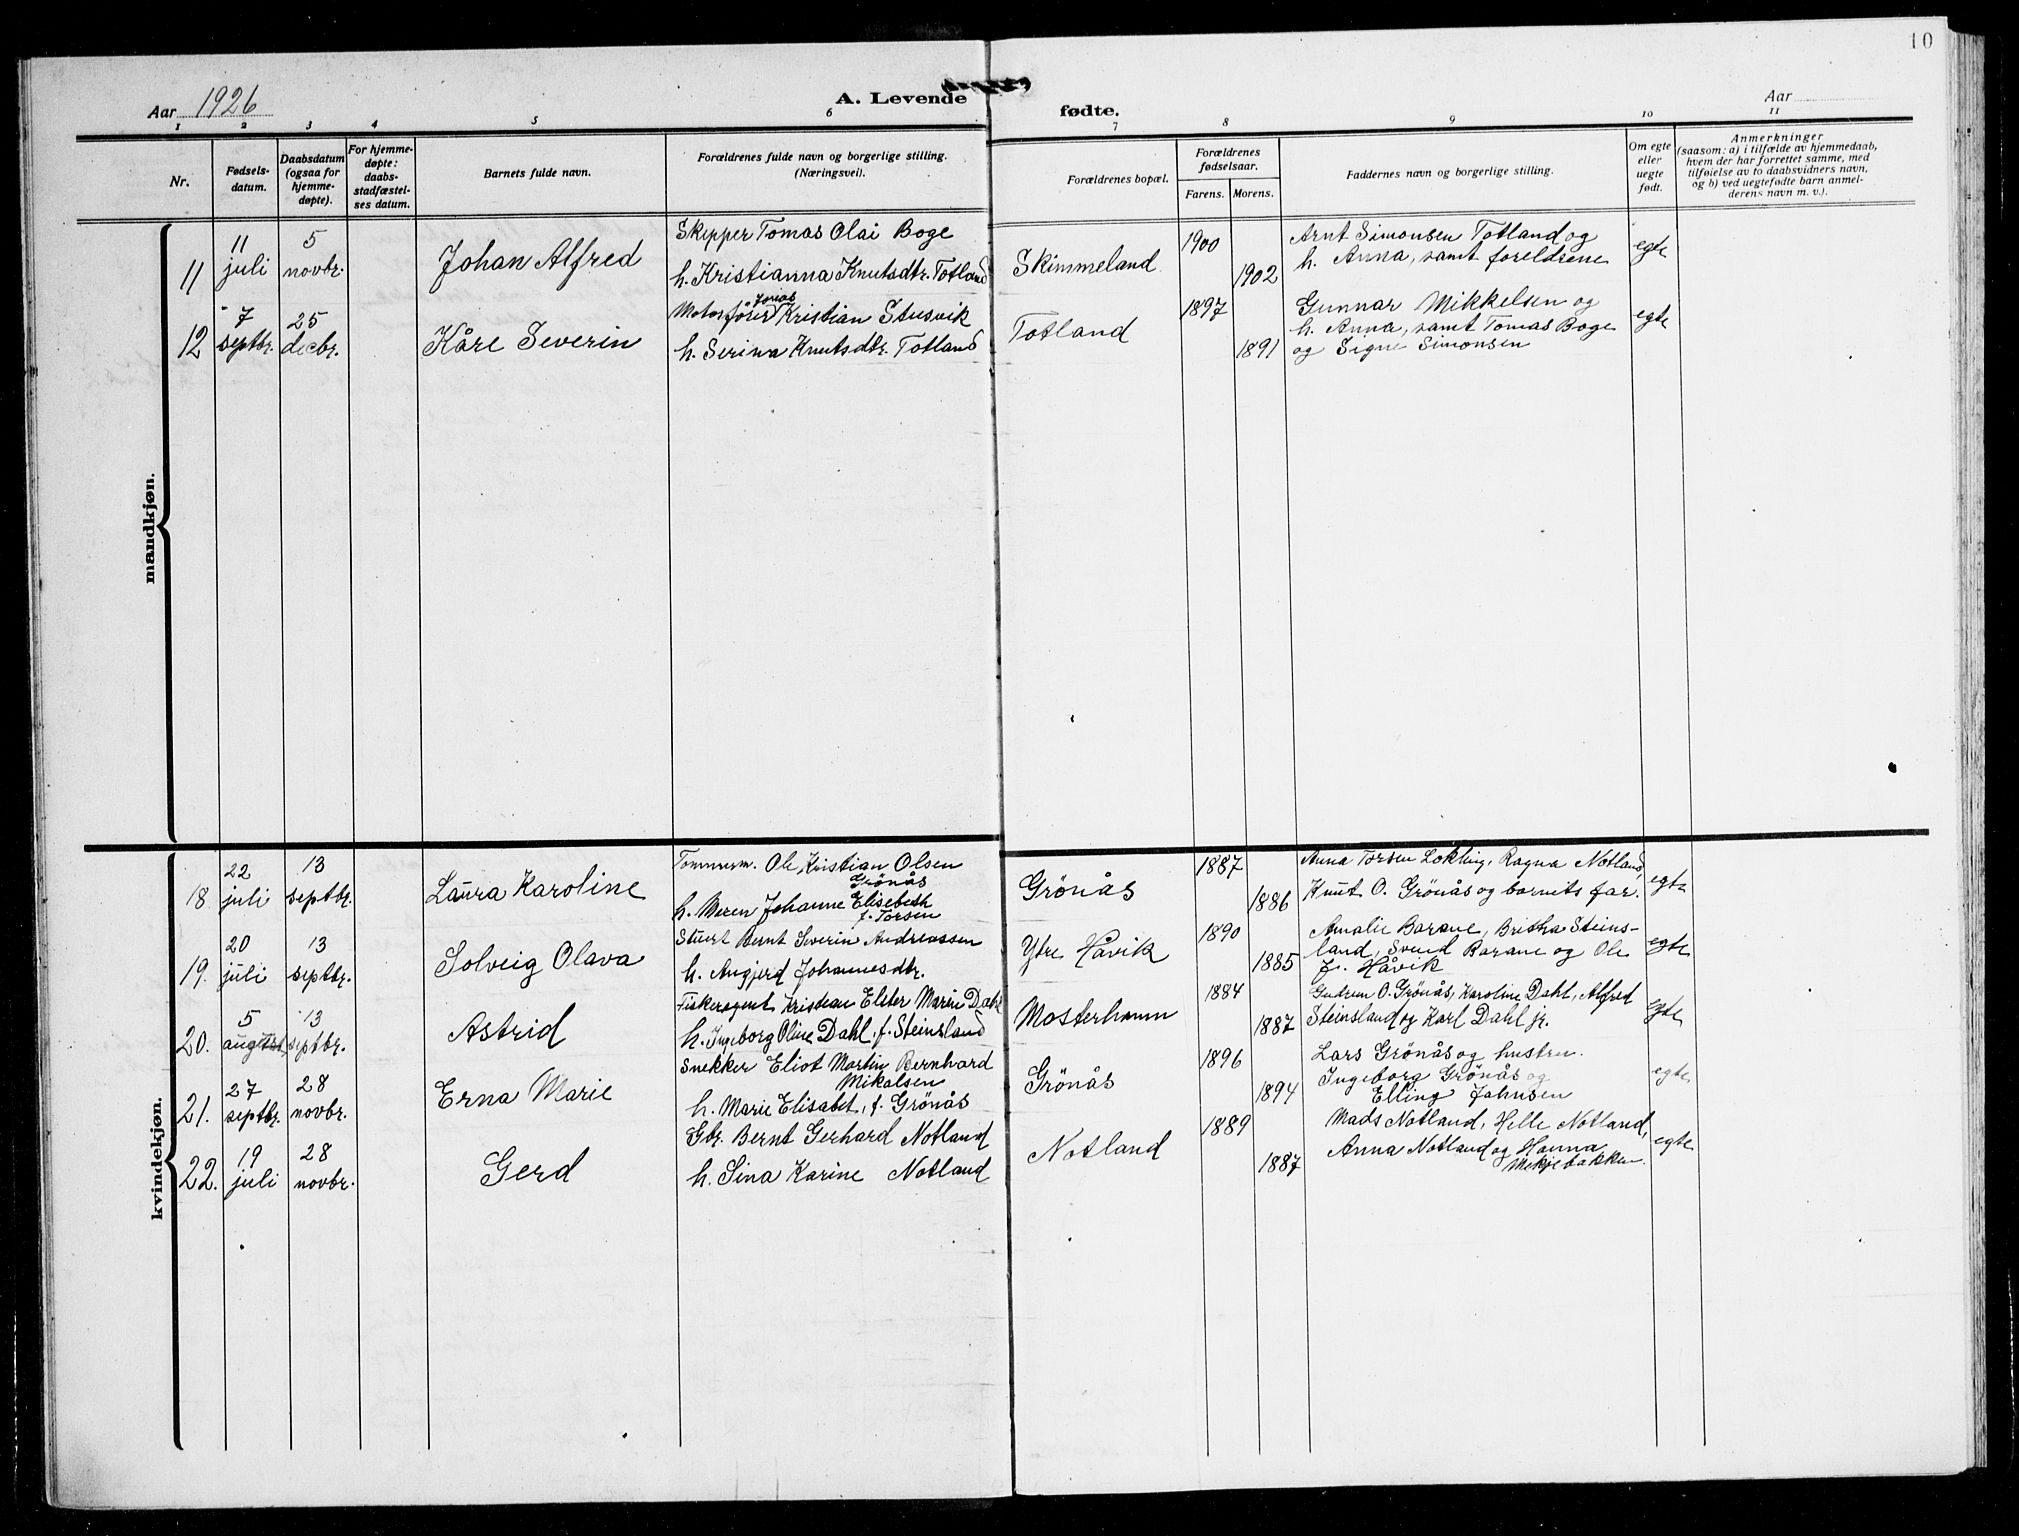 10
Aar 1926
A. Levende
fødte.
Aar
1 2 3 4 5 6 7 8 9 10 11
Nr.
Fødsels-
datum.
Daabsdatum
(ogsaa for
hjemme-
døpte).
For hjemme-
døpte:
daabs-
stadfæstel-
ses datum.
Barnets fulde navn.
Forældrenes fulde navn og borgerlige stilling.
(Næringsvei).
Forældrenes bopæl.
Forældrenes
fødselsaar.
Farens. Morens.
Faddernes navn og borgerlige stilling.
Om egte
eller
uegte
født.
Anmerkninger
(saasom: a) i tilfælde av hjemmedaab,
hvem der har forrettet samme, med
tilføielse av to daabsvidners navn,
og b) ved uegtefødte barn anmel-
derens navn m. v.).
mandkjøn.
11
11
juli
5
novbr.
Johan Alfred
Skipper Tomas Olai Boge
h. Kristianna Knutsdtr. Totland
Skimmeland
1900
1902
Arnt Simonsen Totland og
h. Anna, samt foreldrene
egte
12
7
septbr.
25
decbr.
Kåre Severin
Jonas
Motorfører Kristian Stusvik
h. Serina Knutsdtr. Totland
Totland
1897
1891
Gunnar Mikkelsen og
h. Anna, samt Tomas Boge
og Signe Simonsen
egte
kvindekjøn.
18
22
juli
13
septbr.
Laura Karoline
Tømmerm. Ole Kristian Olsen
Grönås
h. Meren Johanne Elisebeth
f. Torsen
Grönås
1887
1886
Anna Torsen Lokling, Ragna Notland,
Knut O. Grönås og barnets far.
egte
19.
20
juli
13
septbr.
Solveig Olava
Stuert Bernt Severin Andreassen
h. Angjerd Johannesdtr.
Ytre Håvik
1890
1885
Amalie Barane, Britha Steins-
land, Svend Barane og Ole
J. Håvik
egte
20.
5
august
13
septbr.
Astrid
Fiskeragent Kristian Elster Marin Dahl
h. Ingeborg Oline Dahl, f. Steinsland
Mosterhamn
1884
1887
Gudrun O. Grönås, Karoline Dahl, Alfred
Steinsland og Karl Dahl jr.
egte
21.
27
septbr.
28
novbr.
Erna Marie
Snekker Eliot Martin Bernhard
Mikalsen
h. Marie Elisabet, f. Grönås
Grönås
1896
1894
Lars Grönås og hustru.
Ingeborg Grönås og
Elling Johnsen
egte
22.
19
juli
28
novbr.
Gerd
Gbr. Bernt Gerhard Notland
h. Sina Karine Notland
Notland
1889
1887
Mads Notland, Helle Notland,
Anna Notland og Hanna
Mekjebakken.
egte